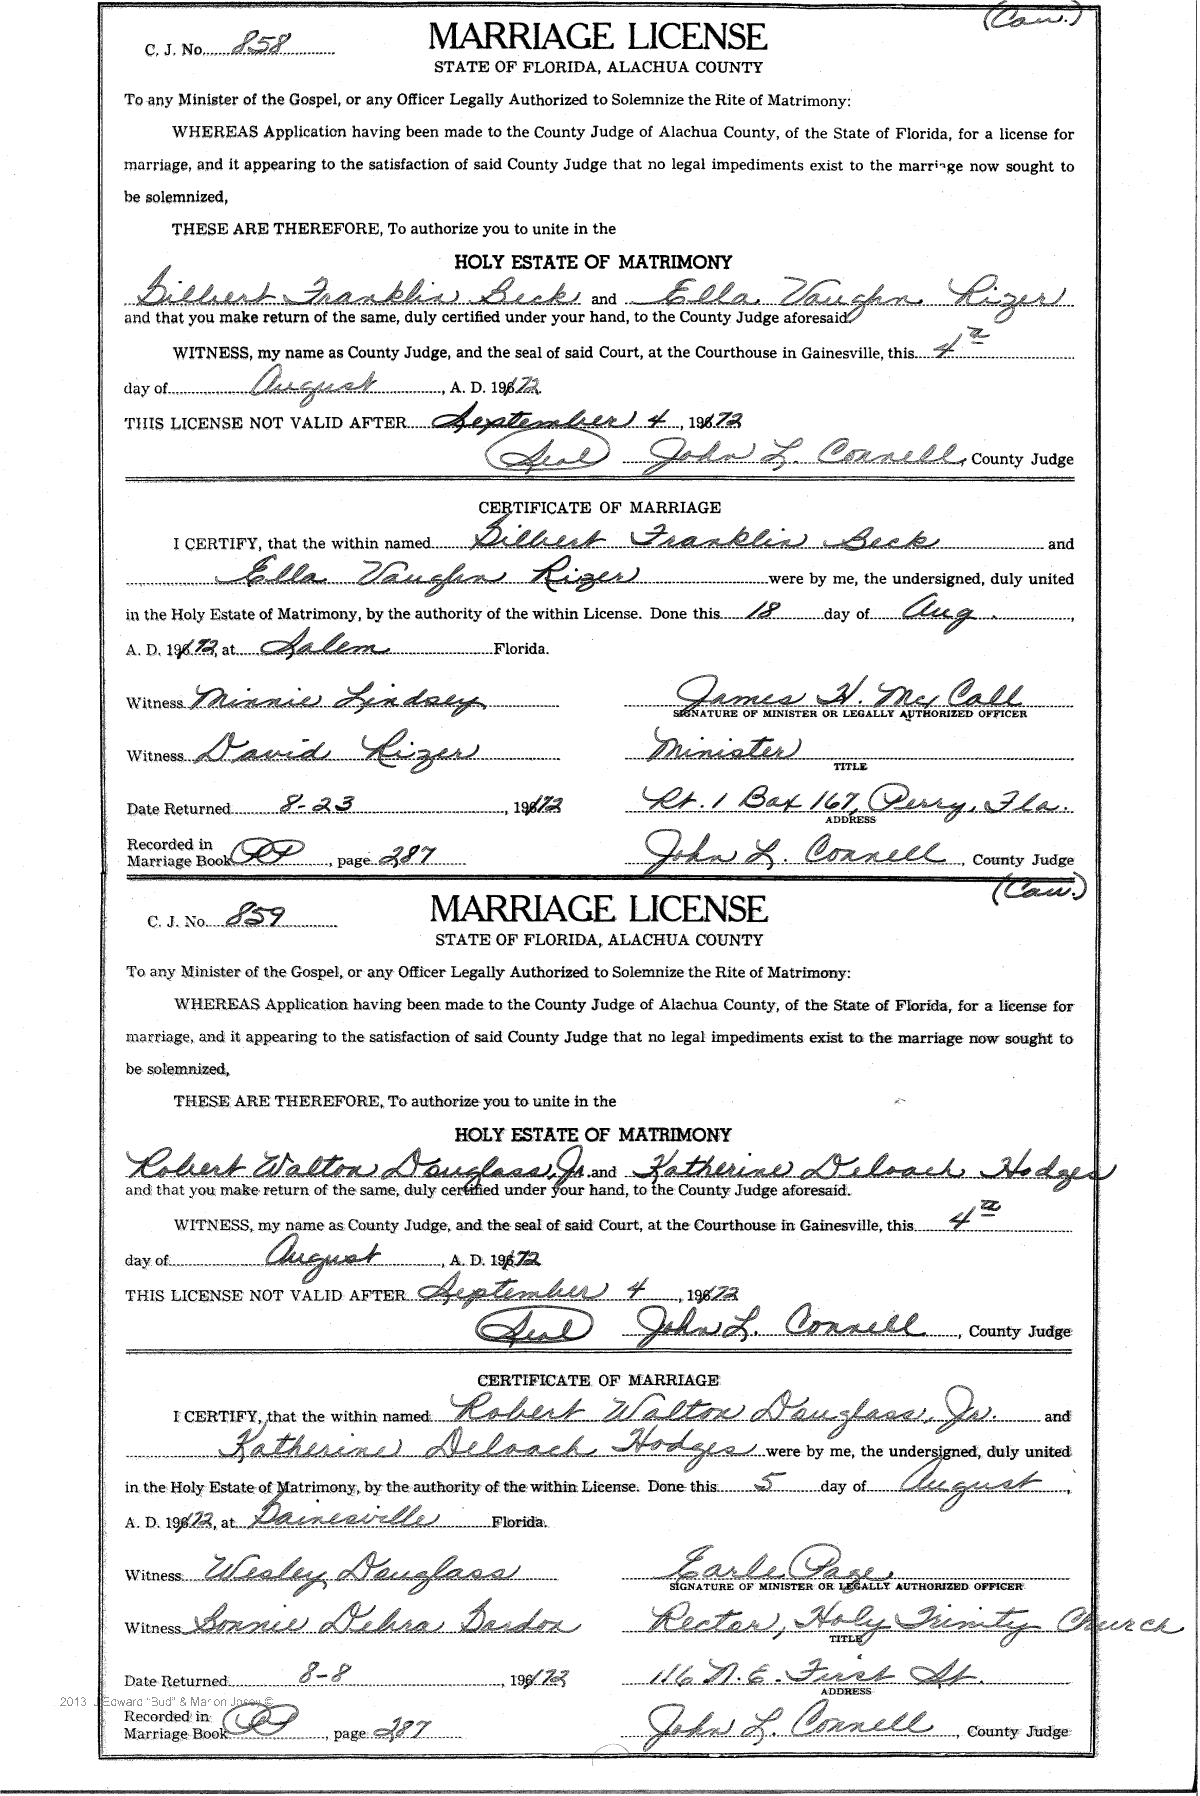 (Cau.)
C. J. No. 858
MARRIAGE LICENSE
STATE OF FLORIDA, ALACHUA COUNTY
To any Minister of the Gospel, or any Officer Legally Authorized to Solemnize the Rite of Matrimony:
WHEREAS Application having been made to the County Judge of Alachua County, of the State of Florida, for a license for
marriage, and it appearing to the satisfaction of said County Judge that no legal impediments exist to the marriage now sought to
be solemnized,
THESE ARE THEREFORE, To authorize you to unite in the
HOLY ESTATE OF MATRIMONY
Gilbert Franklin Beck and Ella Vaughn Rizer
and that you make return of the same, duly certified under your hand, to the County Judge aforesaid.
WITNESS, my name as County Judge, and the seal of said Court, at the Courthouse in Gainesville, this 4th
day of August, A. D. 1972
THIS LICENSE NOT VALID AFTER September 4, 1972
(Seal) John L. Connell, County Judge
CERTIFICATE OF MARRIAGE
I CERTIFY, that the within named Gilbert Franklin Beck and
Ella Vaughn Rizer were by me, the undersigned, duly united
in the Holy Estate of Matrimony, by the authority of the within License. Done this 18 day of Aug.,
A. D. 1972, at Salem Florida.
Witness Minnie Lindsey James H. McCall
SIGNATURE OF MINISTER OR LEGALLY AUTHORIZED OFFICER
Witness David Rizer Minister
TITLE
Date Returned 8-23, 1972 Rt. 1 Box 167, Perry, Fla.
ADDRESS
Recorded in
Marriage Book, page 287 John L. Connell, County Judge
(Cau.)
C. J. No. 859
MARRIAGE LICENSE
STATE OF FLORIDA, ALACHUA COUNTY
To any Minister of the Gospel, or any Officer Legally Authorized to Solemnize the Rite of Matrimony:
WHEREAS Application having been made to the County Judge of Alachua County, of the State of Florida, for a license for
marriage, and it appearing to the satisfaction of said County Judge that no legal impediments exist to the marriage now sought to
be solemnized,
THESE ARE THEREFORE, To authorize you to unite in the
HOLY ESTATE OF MATRIMONY
Robert Walton Douglass, Jr. and Katherine Deloach Hodges
and that you make return of the same, duly certified under your hand, to the County Judge aforesaid.
WITNESS, my name as County Judge, and the seal of said Court, at the Courthouse in Gainesville, this 4th
day of August, A. D. 1972
THIS LICENSE NOT VALID AFTER September 4, 1972
(Seal) John L. Connell, County Judge
CERTIFICATE OF MARRIAGE
I CERTIFY, that the within named Robert Walton Douglass, Jr. and
Katherine Deloach Hodges were by me, the undersigned, duly united
in the Holy Estate of Matrimony, by the authority of the within License. Done this 5 day of August,
A. D. 1972, at Gainesville Florida.
Witness Wesley Douglass Earle Page
SIGNATURE OF MINISTER OR LEGALLY AUTHORIZED OFFICER
Witness Bonnie Debra Gordon Rector, Holy Trinity Church
TITLE
Date Returned 8-8, 1972 116 N. E. First St.
ADDRESS
2013 J Edward "Bud" & Marion ©
Recorded in
Marriage Book, page 287 John L. Connell, County Judge